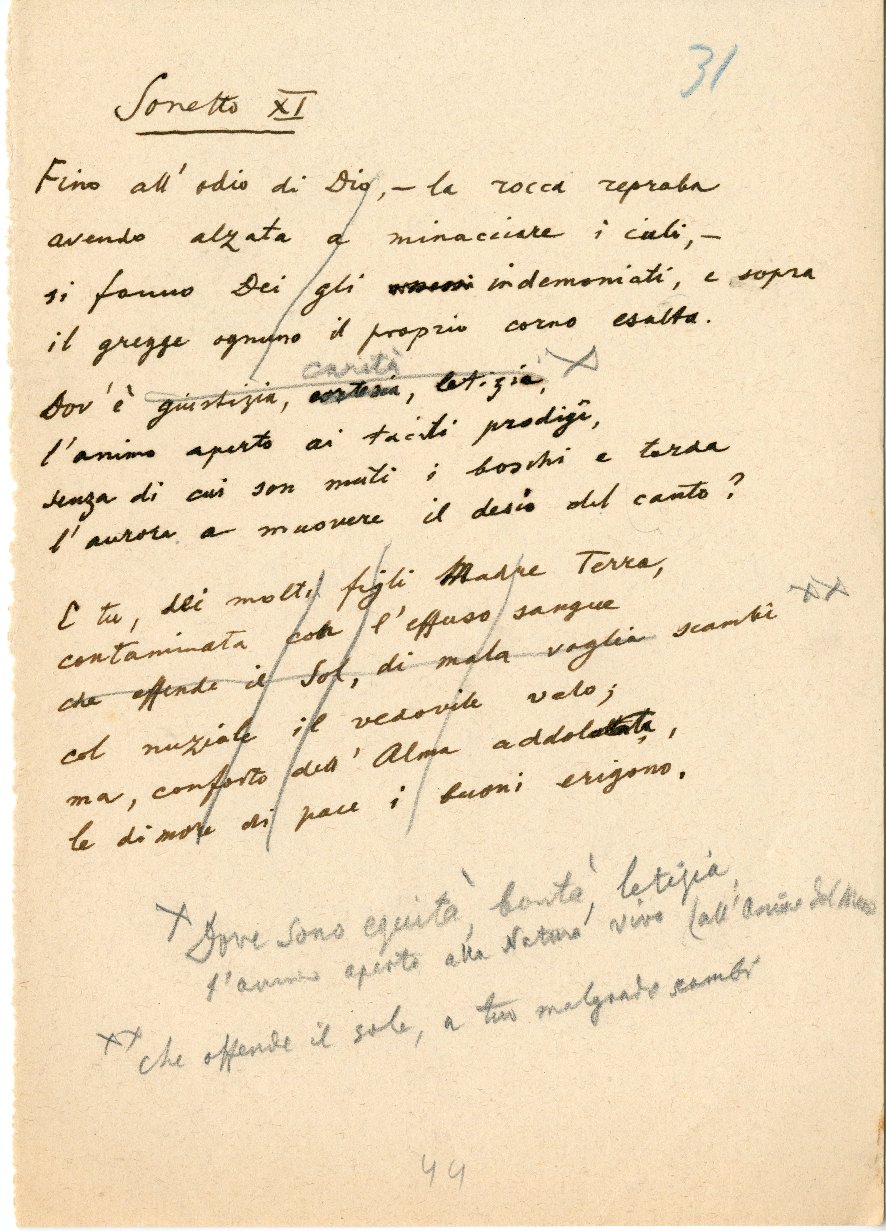 31
Sonetto XI
Fino all'odio di Dio, – la rocca reproba
avendo alzata a minacciare i cieli, –
si fanno Dei gli indemoniati, e sopra
il gregge ognuno il proprio corno esalta.
carità
Dov'è giustizia, cortesia, letizia, X
l'animo aperto ai taciti prodigi,
senza di cui son muti i boschi e tarda
l'aurora a muovere il desio del canto?
E tu, dei molti figli Madre Terra,
contaminata con l'effuso sangue
che offende il Sol, di mala voglia scambi XX
col nuziale il vedovile velo;
ma, conforto dell'Alma addolorata,
le dimore di pace i buoni erigono.
X Dove sono equità, bontà, letizia,
l'animo aperto alla Natura viva (all'Anima del
XX che offende il sole, a tuo malgrado scambi
44